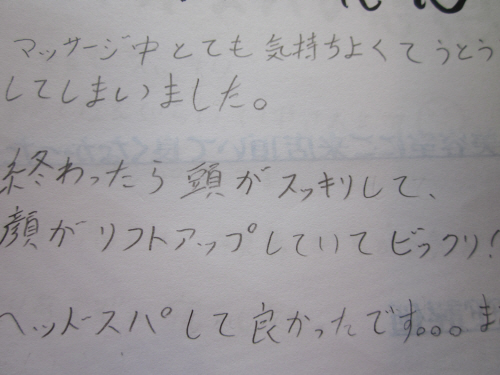 マッサージ中とても気持ちよくてうとう
してしまいました。
終わったら頭がスッキリして、
顔がリフトアップしていてビックリ!
ヘッドースパして良かったです。。。ま